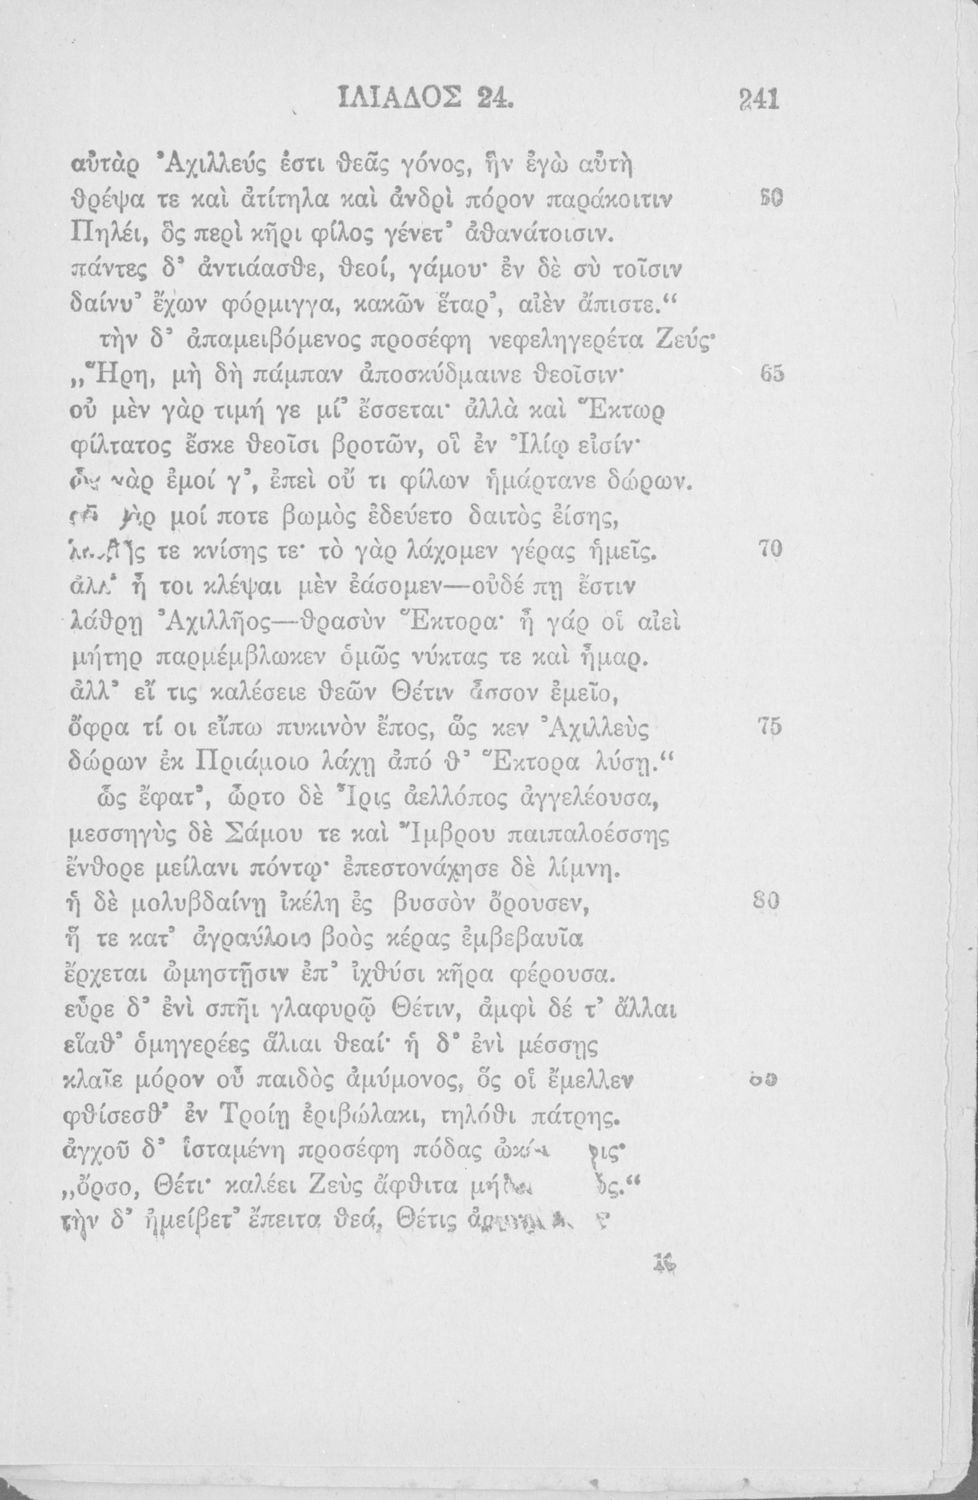 ΙΛΙΑΔΟΣ 24. 241
αὐτὰρ Ἀχιλλεύς ἐστι θεᾶς γόνος, ἣν ἐγὼ αὐτὴ
θρέψα τε καὶ ἀτίτηλα καὶ ἀνδρὶ πόρον παράκοιτιν 60
Πηλέι, ὃς περὶ κῆρι φίλος γένετ’ ἀθανάτοισιν.
πάντες δ’ ἀντιάασθε, θεοί, γάμου· ἐν δὲ σὺ τοῖσιν
δαίνυ’ ἔχων φόρμιγγα, κακῶν ἕταρ’, αἰὲν ἄπιστε.“
τὴν δ’ ἀπαμειβόμενος προσέφη νεφεληγερέτα Ζεύς·
„Ἥρη, μὴ δὴ πάμπαν ἀποσκύδμαινε θεοῖσιν· 65
οὐ μὲν γὰρ τιμή γε μί’ ἔσσεται· ἀλλὰ καὶ Ἕκτωρ
φίλτατος ἔσκε θεοῖσι βροτῶν, οἳ ἐν Ἰλίῳ εἰσίν·
ὣς γὰρ ἐμοί γ’, ἐπεὶ οὔ τι φίλων ἡμάρτανε δώρων.
γὰρ μοί ποτε βωμὸς ἐδεύετο δαιτὸς ἐίσης,
τε κνίσης τε· τὸ γὰρ λάχομεν γέρας ἡμεῖς. 70
ἀλλ’ ἦ τοι κλέψαι μὲν ἐάσομεν—οὐδέ πῃ ἔστιν
λάθρῃ Ἀχιλλῆος—θρασὺν Ἕκτορα· ἦ γάρ οἱ αἰεὶ
μήτηρ παρμέμβλωκεν ὁμῶς νύκτας τε καὶ ἦμαρ.
ἀλλ’ εἴ τις καλέσειε θεῶν Θέτιν ἆσσον ἐμεῖο,
ὄφρα τί οι εἴπω πυκινὸν ἔπος, ὥς κεν Ἀχιλλεὺς 75
δώρων ἐκ Πριάμοιο λάχῃ ἀπό θ’ Ἕκτορα λύσῃ.“
ὣς ἔφατ’, ὦρτο δὲ Ἶρις ἀελλόπος ἀγγελέουσα,
μεσσηγὺς δὲ Σάμου τε καὶ Ἴμβρου παιπαλοέσσης
ἔνθορε μείλανι πόντῳ· ἐπεστονάχησε δὲ λίμνη.
ἡ δὲ μολυβδαίνῃ ἰκέλη ἐς βυσσὸν ὄρουσεν, 80
ἥ τε κατ’ ἀγραύλοιο βοὸς κέρας ἐμβεβαυῖα
ἔρχεται ὠμηστῇσιν ἐπ’ ἰχθύσι κῆρα φέρουσα.
εὗρε δ’ ἐνὶ σπῆι γλαφυρῷ Θέτιν, ἀμφὶ δέ τ’ ἄλλαι
εἵαθ’ ὁμηγερέες ἅλιαι θεαί· ἡ δ’ ἐνὶ μέσσῃς
κλαῖε μόρον οὗ παιδὸς ἀμύμονος, ὅς οἱ ἔμελλεν
φθίσεσθ’ ἐν Τροίῃ ἐριβώλακι, τηλόθι πάτρης.
ἀγχοῦ δ’ ἱσταμένη προσέφη πόδας
„ὄρσο, Θέτι· καλέει Ζεὺς ἄφθιτα
τὴν δ’ ἠμείβετ’ ἔπειτα θεά, Θέτις
16